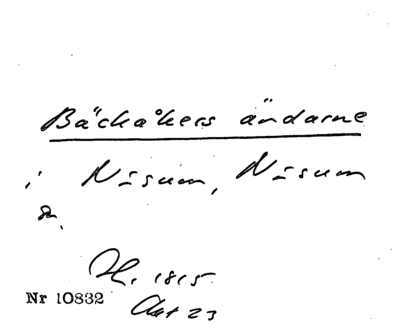 Bäckåkers ändarne
i Näsum, Näsum
sn.
H. 1815
Nr 10832 Akt 23